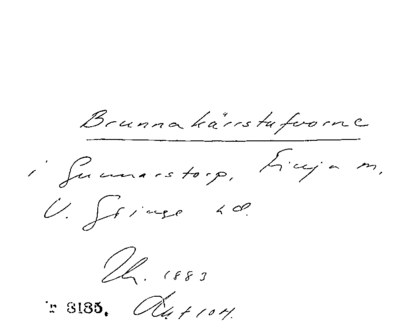 Brunnakärrstufvorne
i Gunnarstorp, Finja m.
V. Göinge hd.
1883
r 3135.